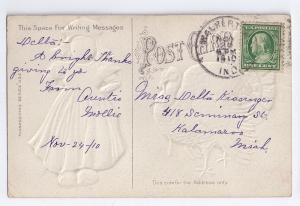 This Space For Writing Messages
Delta:-
A bright Thanks
giving to you
From
Auntie
Mollie
Nov-24-10
POST
NOV
1910
IND.
Miss Delta
418 Seminary St.
Kalamazoo
Mich.
This side for the Address only.